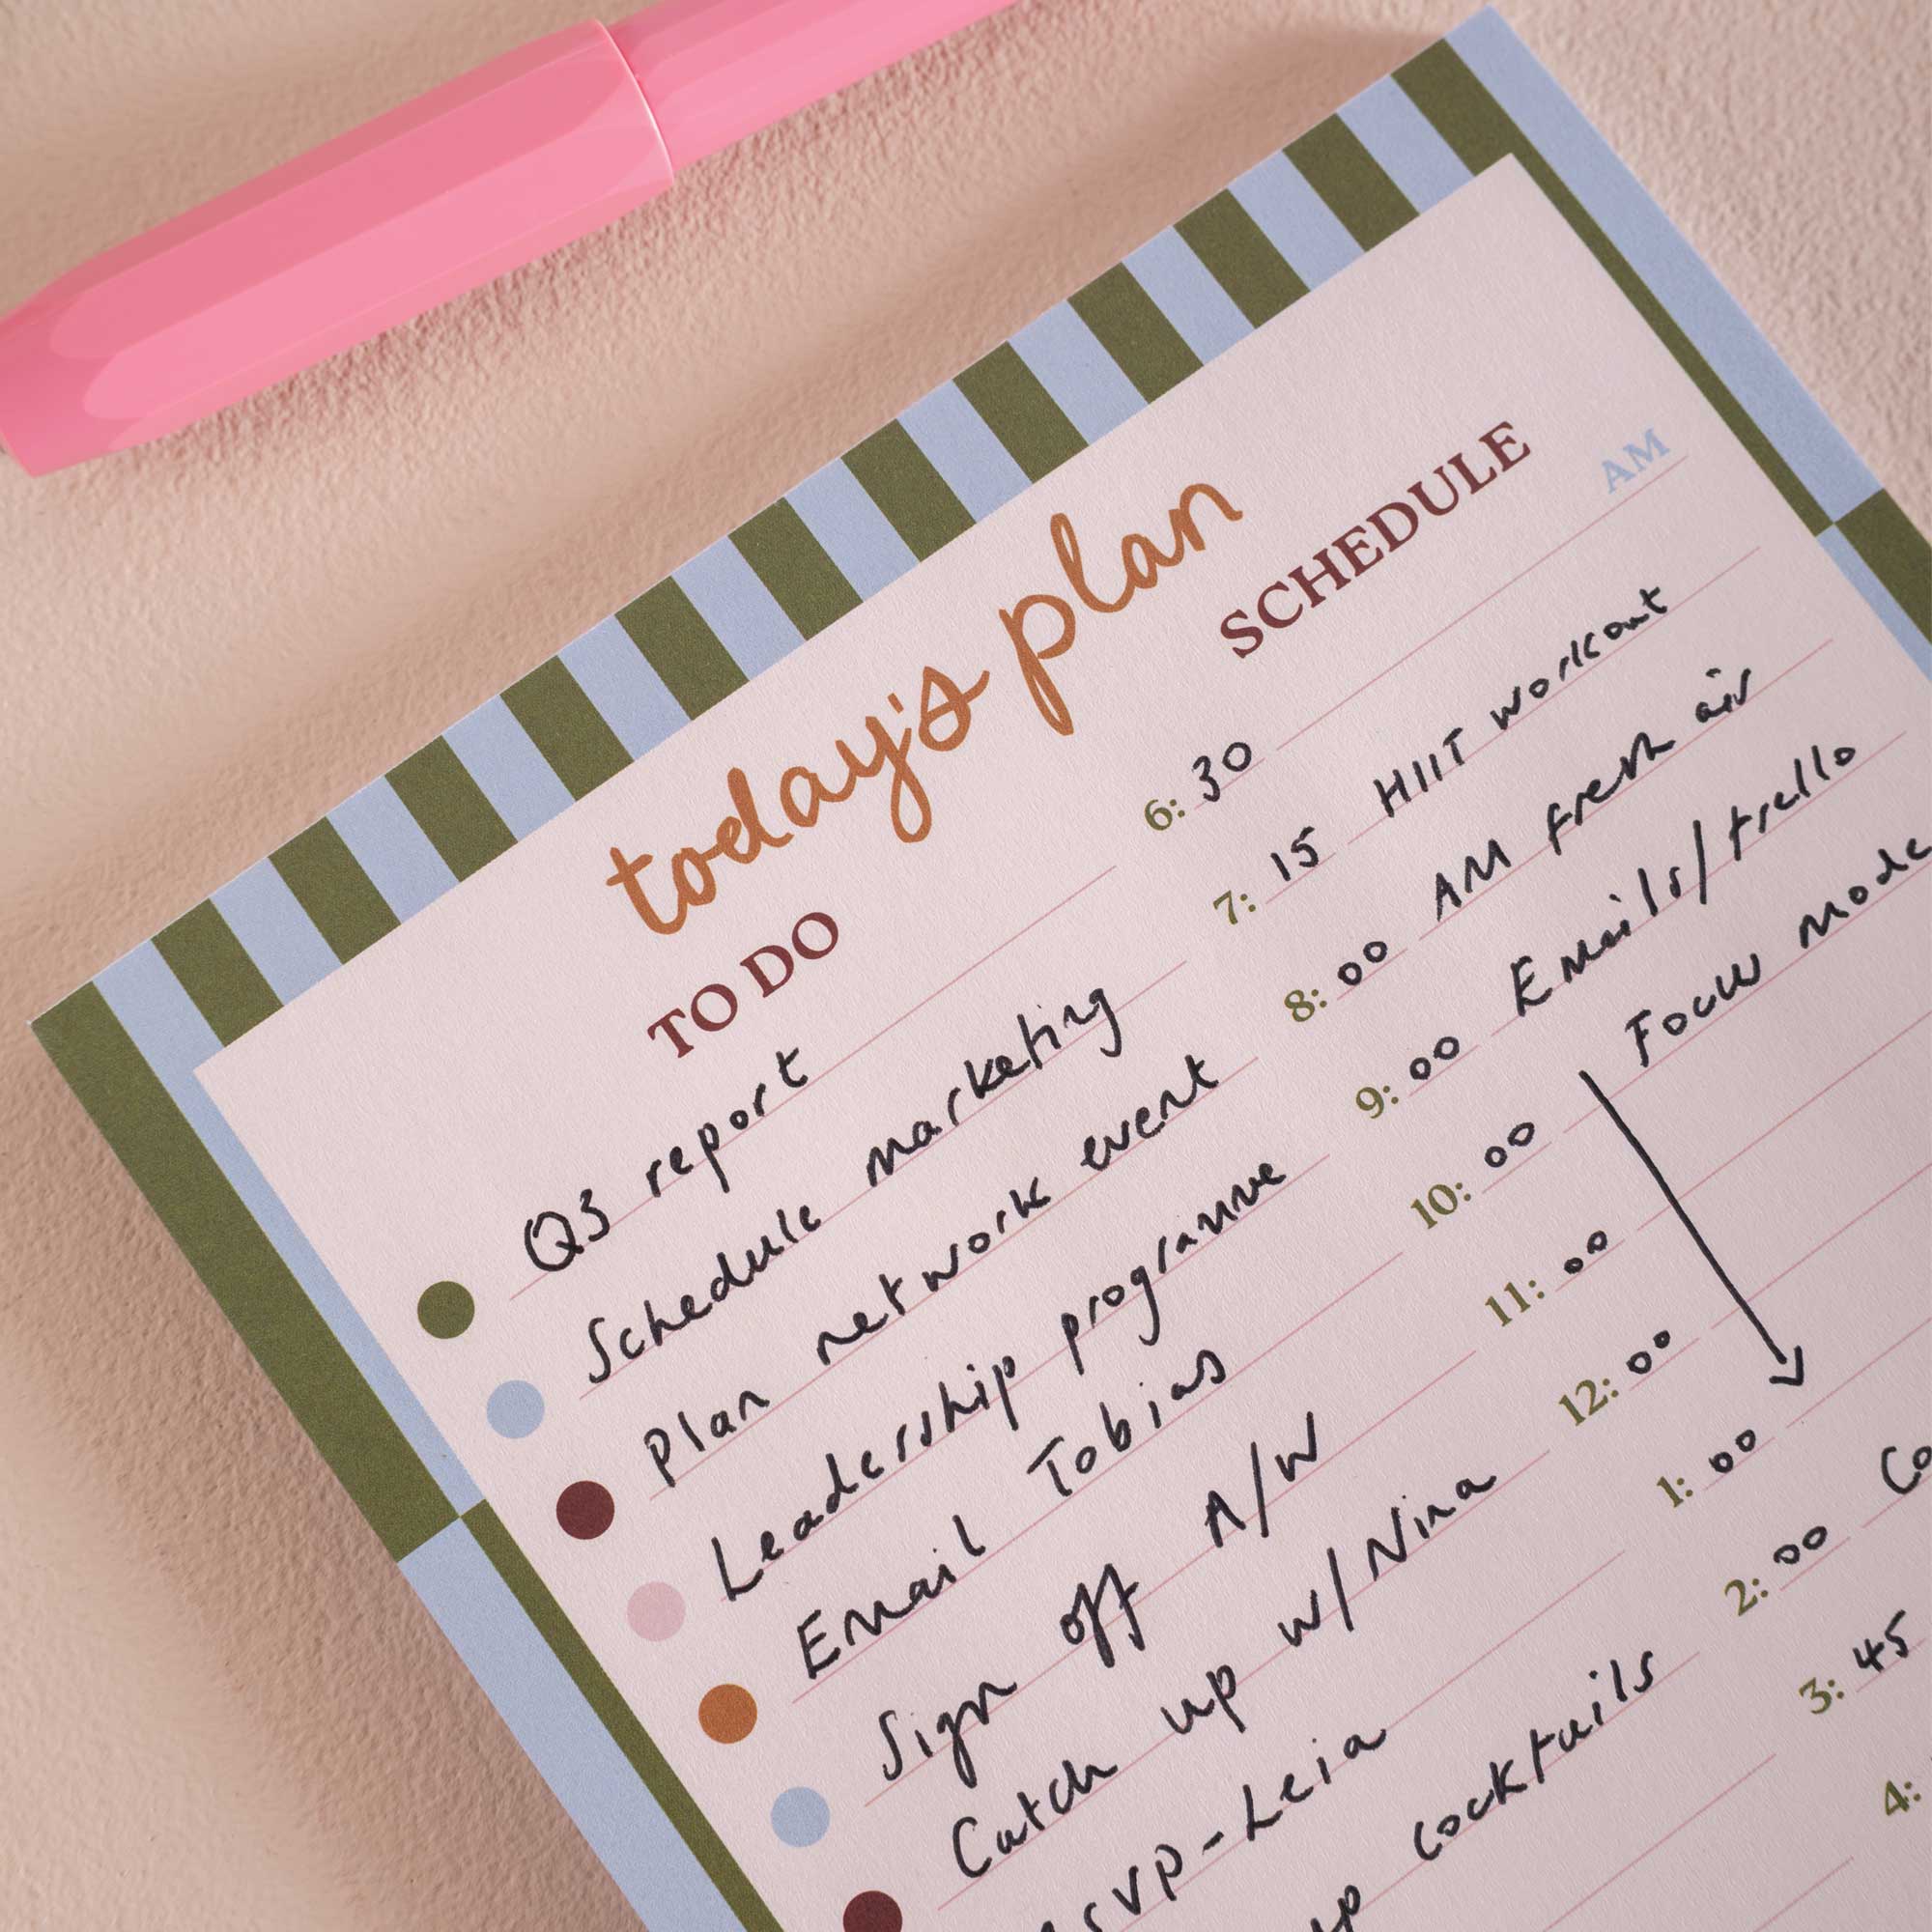 today's plan
TO DO
Q3 report
Schedule marketing
Plan network event
Leadership programme
Email Tobias
Sign off A/W
Catch up w/Nina
svp-Leia
cocktails
SCHEDULE
6:30 AM
7:15 HIIT workout
8:00 AM fresh air
9:00 Emails/trello
10:00 Focus mode
11:00
12:00
1:00
2:00 Co
3:45
4: